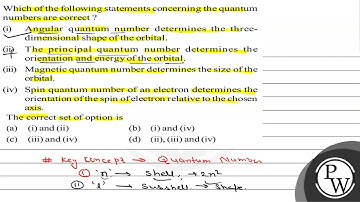 Which of the following statements concerning the quantum
numbers are correct ?
(i) Angular quantum number determines the three-
dimensional shape of the orbital.
(ii) The principal quantum number determines the
orientation and energy of the orbital.
(iii) Magnetic quantum number determines the size of the
orbital.
(iv) Spin quantum number of an electron determines the
orientation of the spin of electron relative to the chosen
axis.
The correct set of option is
(a) (i) and (ii) (b) (i) and (iv)
(c) (iii) and (iv) (d) (ii), (iii) and (iv)
# Key Concept → Quantum Number
(i) 'n' → Shell, → 2n²
(ii) 'l' → Subshell → Shape.
PW